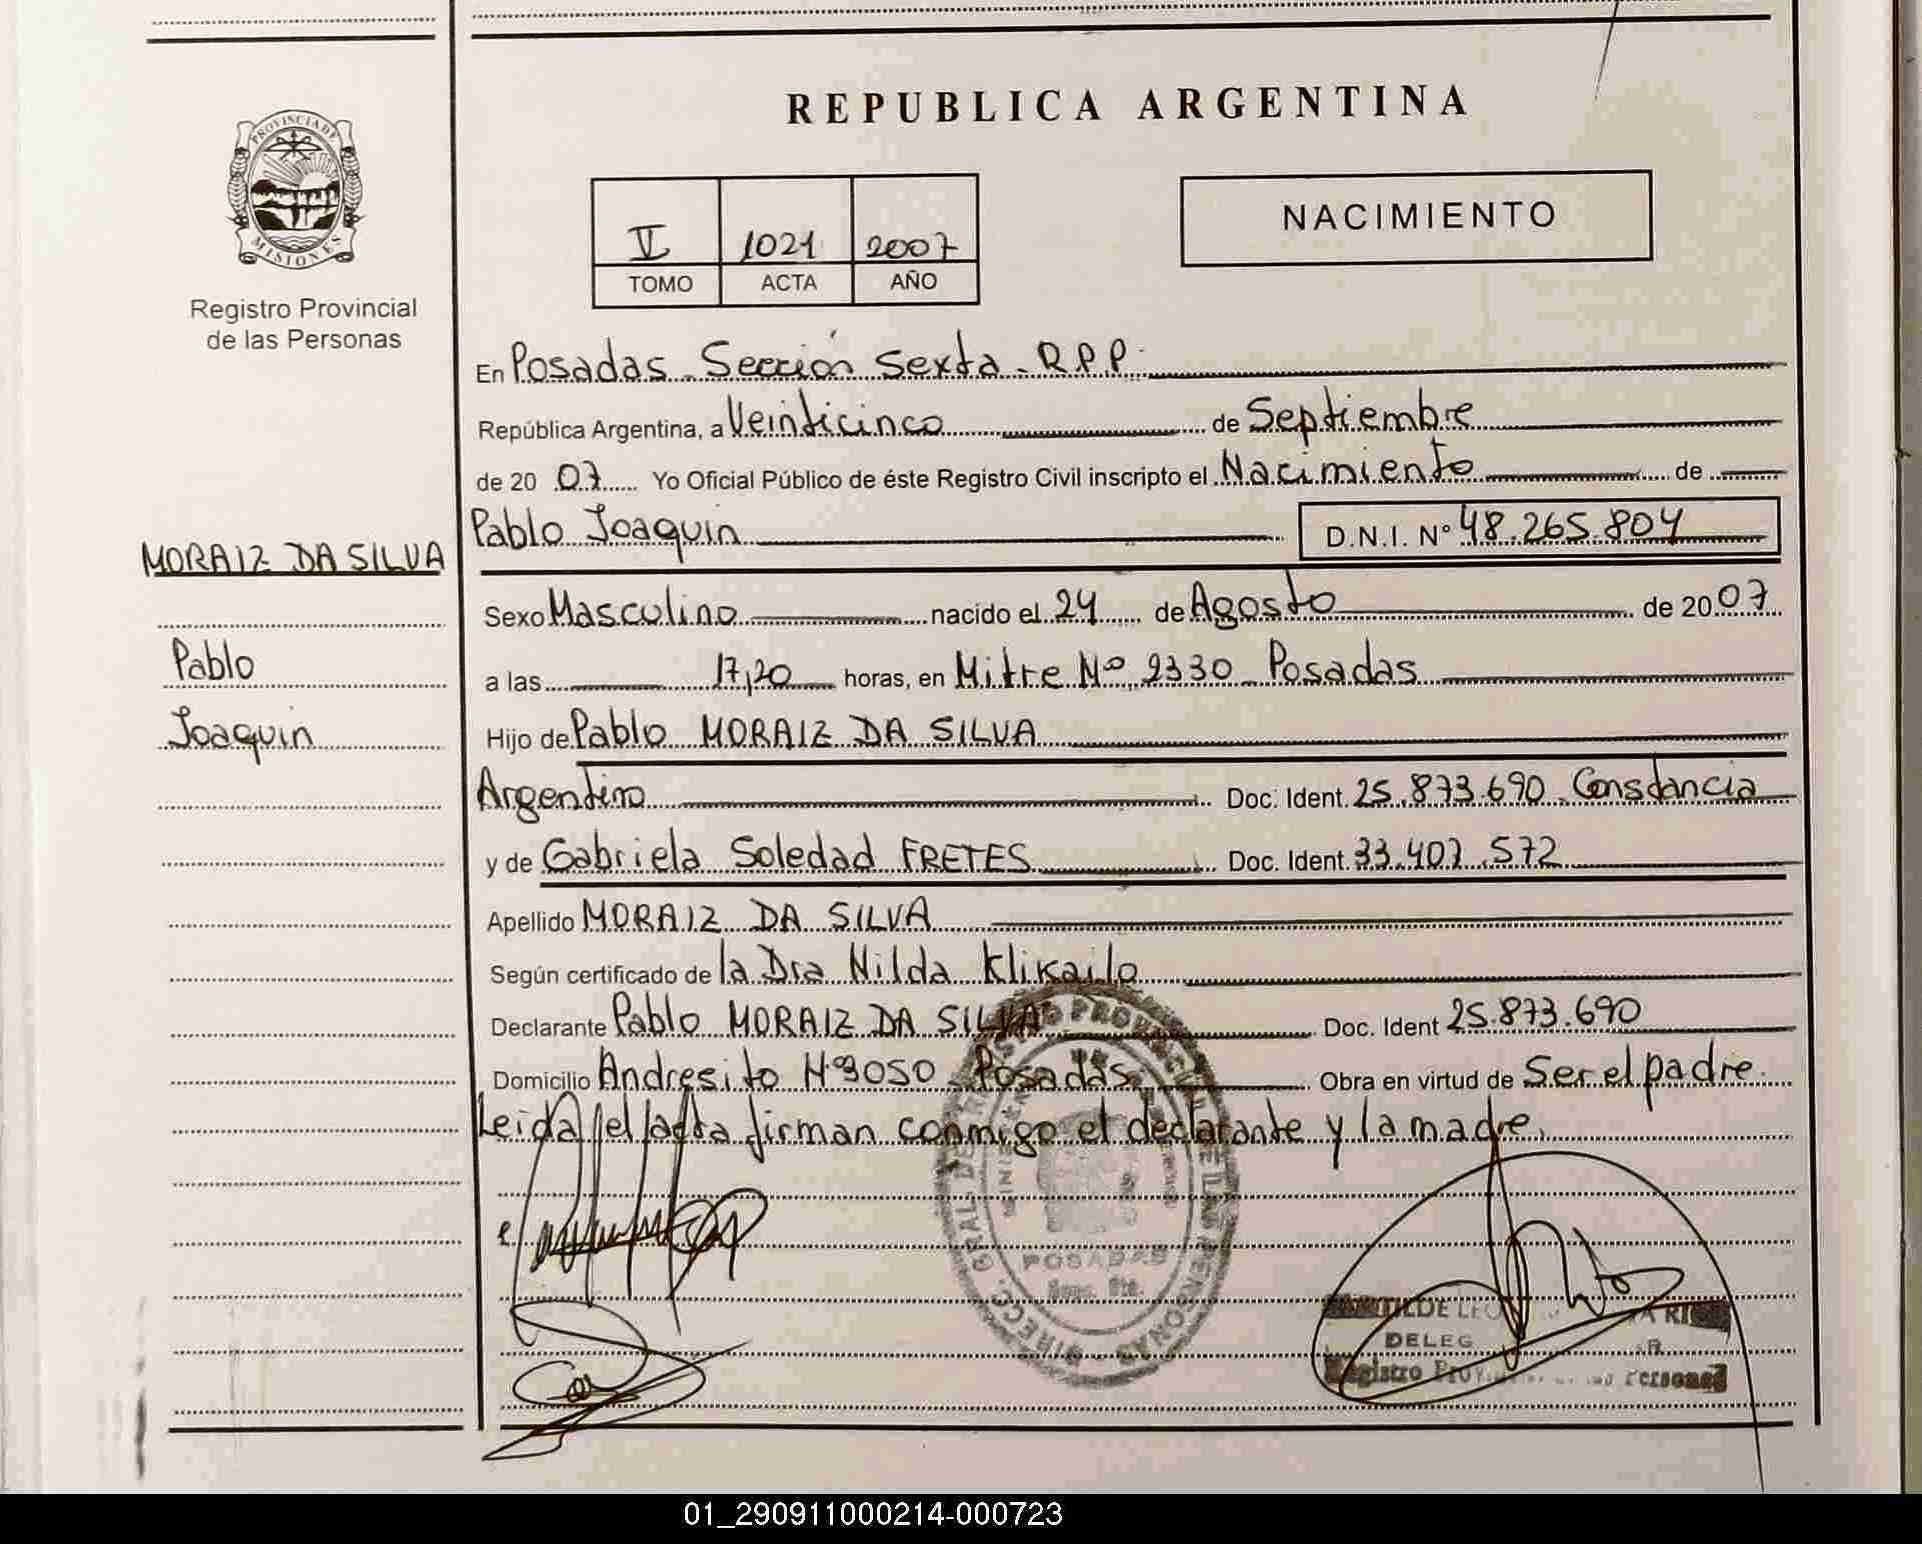 REPUBLICA ARGENTINA
PROVINCIA DE
MISIONES
Registro Provincial
de las Personas
V 1021 2007
TOMO ACTA AÑO
NACIMIENTO
En Posadas - Sección Sexta - R.P.P.
República Argentina, a Veinticinco de Septiembre
de 20 07 Yo Oficial Público de éste Registro Civil inscripto el Nacimiento de
Pablo Joaquin D.N.I. Nº 48.265.804
MORAIZ DA SILVA
Pablo
Joaquin
Sexo Masculino nacido el 24 de Agosto de 20 07
a las 17,20 horas, en Mitre Nº 2330 Posadas
Hijo de Pablo MORAIZ DA SILVA
Argentino Doc. Ident. 25.873.690 Constancia
y de Gabriela Soledad FRETES Doc. Ident. 33.407.572
Apellido MORAIZ DA SILVA
Según certificado de la Dra Nilda Klikailo
Declarante Pablo MORAIZ DA SILVA Doc. Ident 25.873.690
Domicilio Andresito Nº 3050 - Posadas Obra en virtud de Ser el padre.
Leida el acta firman conmigo el declarante y la madre.
DIRECC. GRAL. DE REGISTRO PROVINCIAL DE LAS PERSONAS
POSADAS
Secc. 6ta.
DELEG
Registro Personas
01_290911000214-000723